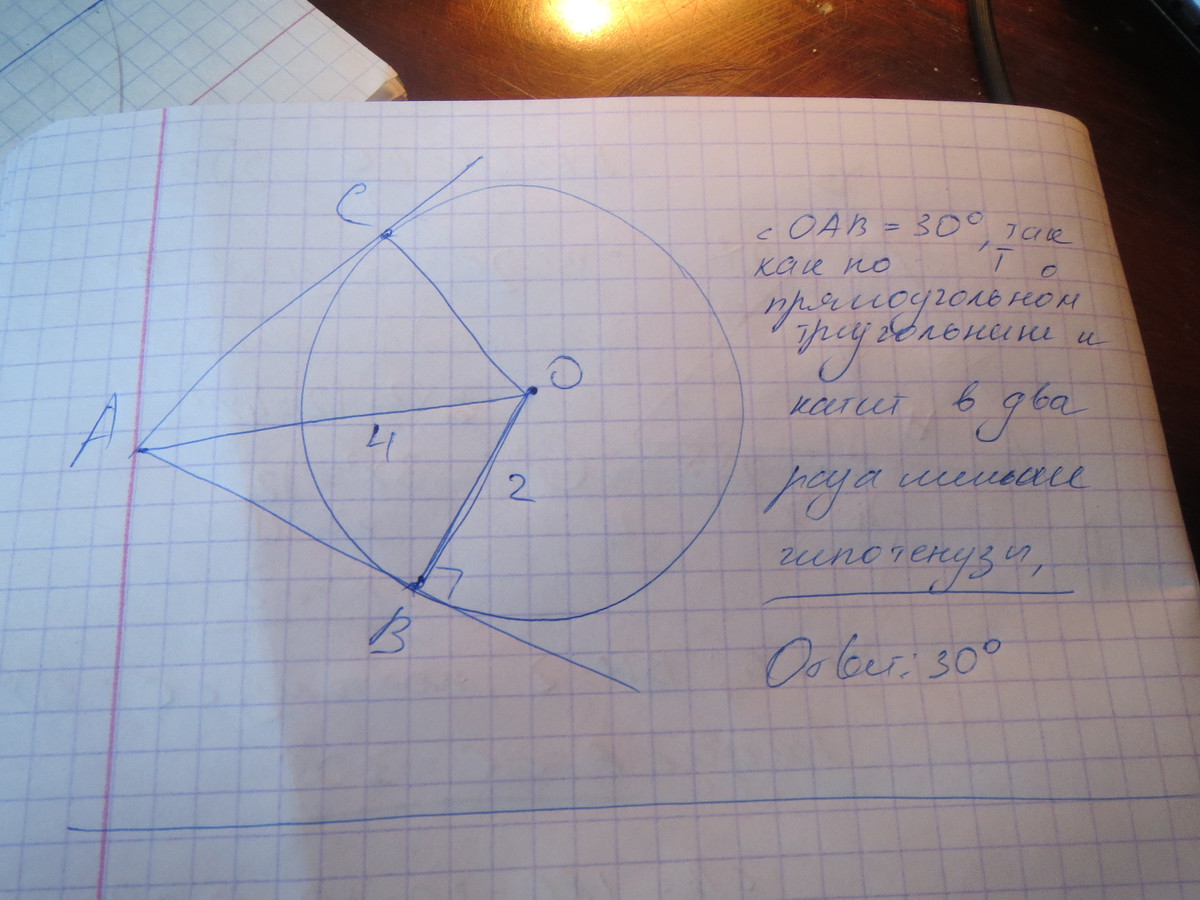 C
A
O
4
2
B
∠OAB = 30°, так
как по Т о
прямоугольном
треугольнике и
катит в два
раза меньше
гипотенузы,
Ответ: 30°